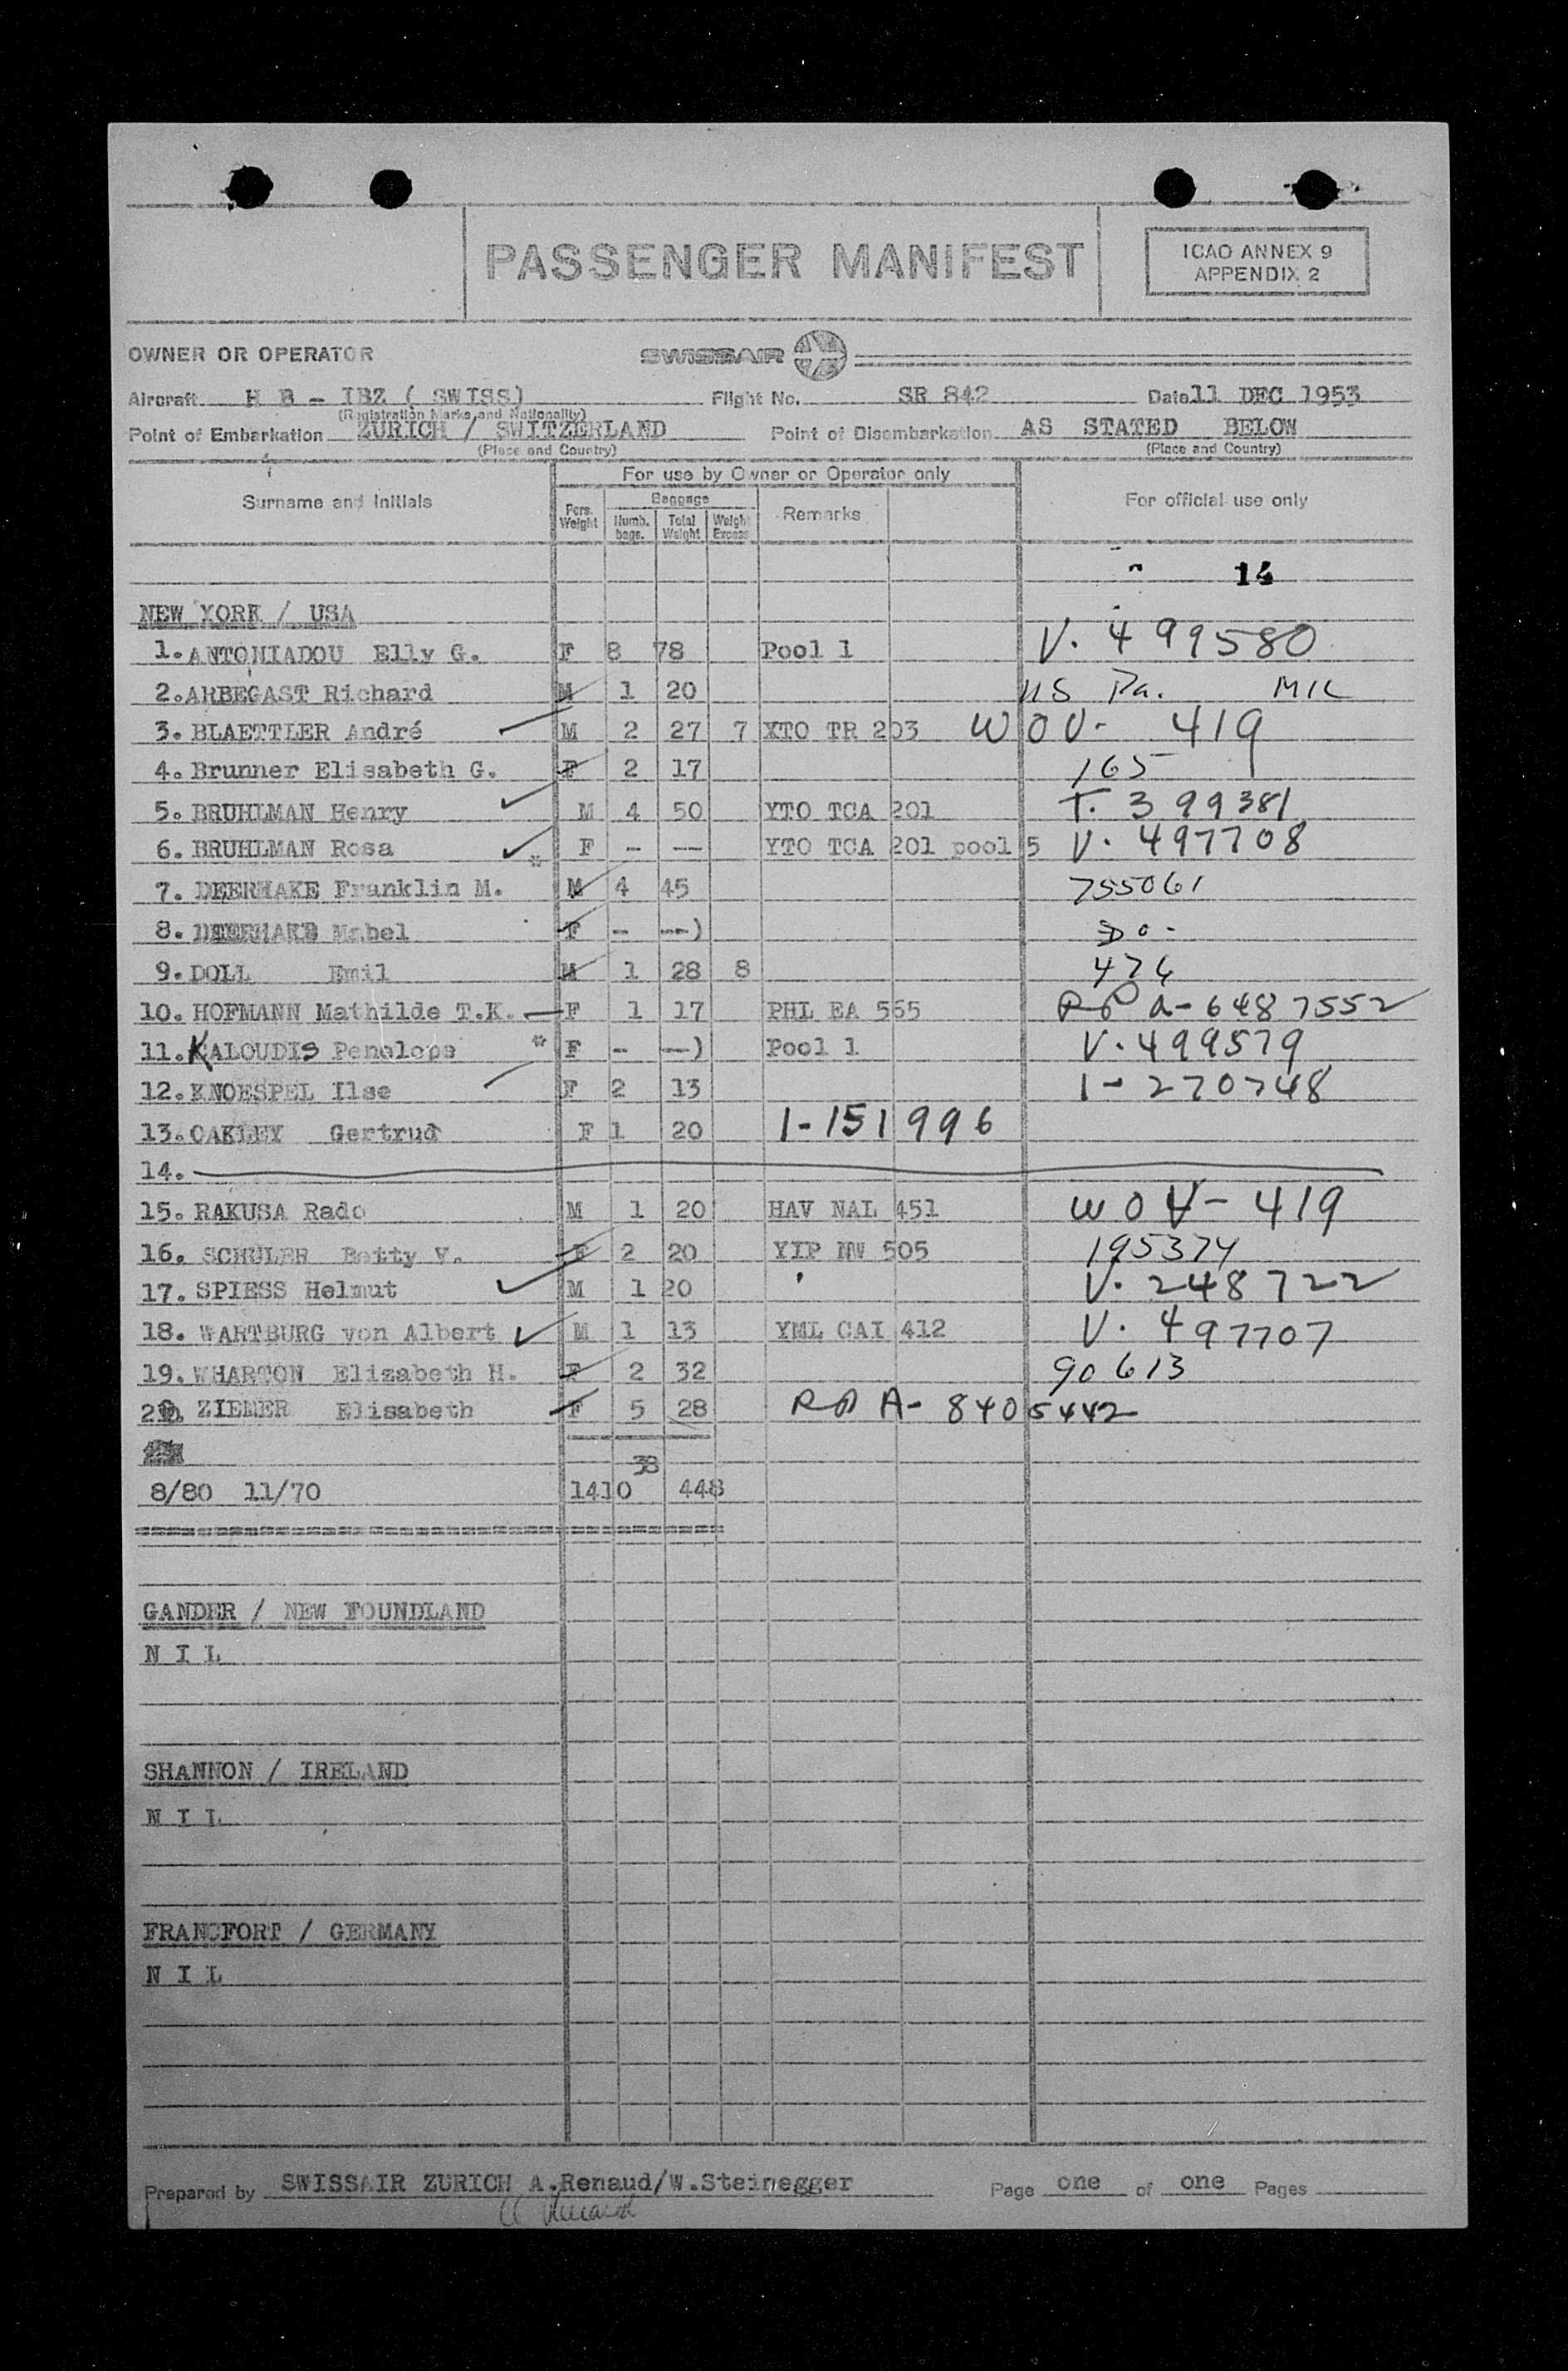 PASSENGER MANIFEST
ICAO ANNEX 9
APPENDIX 2
OWNER OR OPERATOR SWISSAIR
Aircraft H B - IBZ ( SWISS) Flight No. SR 842 Date 11 DEC 1953
(Registration Marks and Nationality)
Point of Embarkation ZURICH / SWITZERLAND Point of Disembarkation AS STATED BELOW
(Place and Country) (Place and Country)
For use by Owner or Operator only
Surname and Initials Pers. Weight Baggage Numb. bags. Total Weight Weight Excess Remarks For official use only
14
NEW YORK / USA
1. ANTONIADOU Elly G. F 8 78 Pool 1 V. 499580
2. ARBEGAST Richard M 1 20 US Pa. MIL
3. BLAETTLER André M 2 27 7 XTO TR 203 WOV- 419
4. Brunner Elisabeth G. F 2 17 165
5. BRUHLMAN Henry M 4 50 YTO TCA 201 T. 399381
6. BRUHLMAN Rosa F - -- YTO TCA 201 pool 5 V. 497708
7. DEERHAKE Franklin M. * M 4 45 755061
8. DEERHAKE Mabel F - --) Do -
9. DOLL Emil M 1 28 8 474
10. HOFMANN Mathilde T.K. F 1 17 PHL EA 565 RP A-6487552
11. KALOUDIS Penelope * F - --) Pool 1 V. 499579
12. KNOESPEL Ilse F 2 13 1-270748
13. OAKLEY Gertrud F 1 20 1-151996
14.
15. RAKUSA Rado M 1 20 HAV NAL 451 WOV- 419
16. SCHULER Betty V. F 2 20 YIP NW 505 195374
17. SPIESS Helmut M 1 20 V. 248722
18. WARTBURG von Albert M 1 13 YML CAI 412 V. 497707
19. WHARTON Elizabeth H. F 2 32 90613
20. ZIEMER Elisabeth F 5 28 RP A- 8405442
38
8/80 11/70 1410 448
GANDER / NEW FOUNDLAND
N I L
SHANNON / IRELAND
N I L
FRANCFORT / GERMANY
N I L
Prepared by SWISSAIR ZURICH A.Renaud/W.Steinegger Page one of one Pages
A Renaud